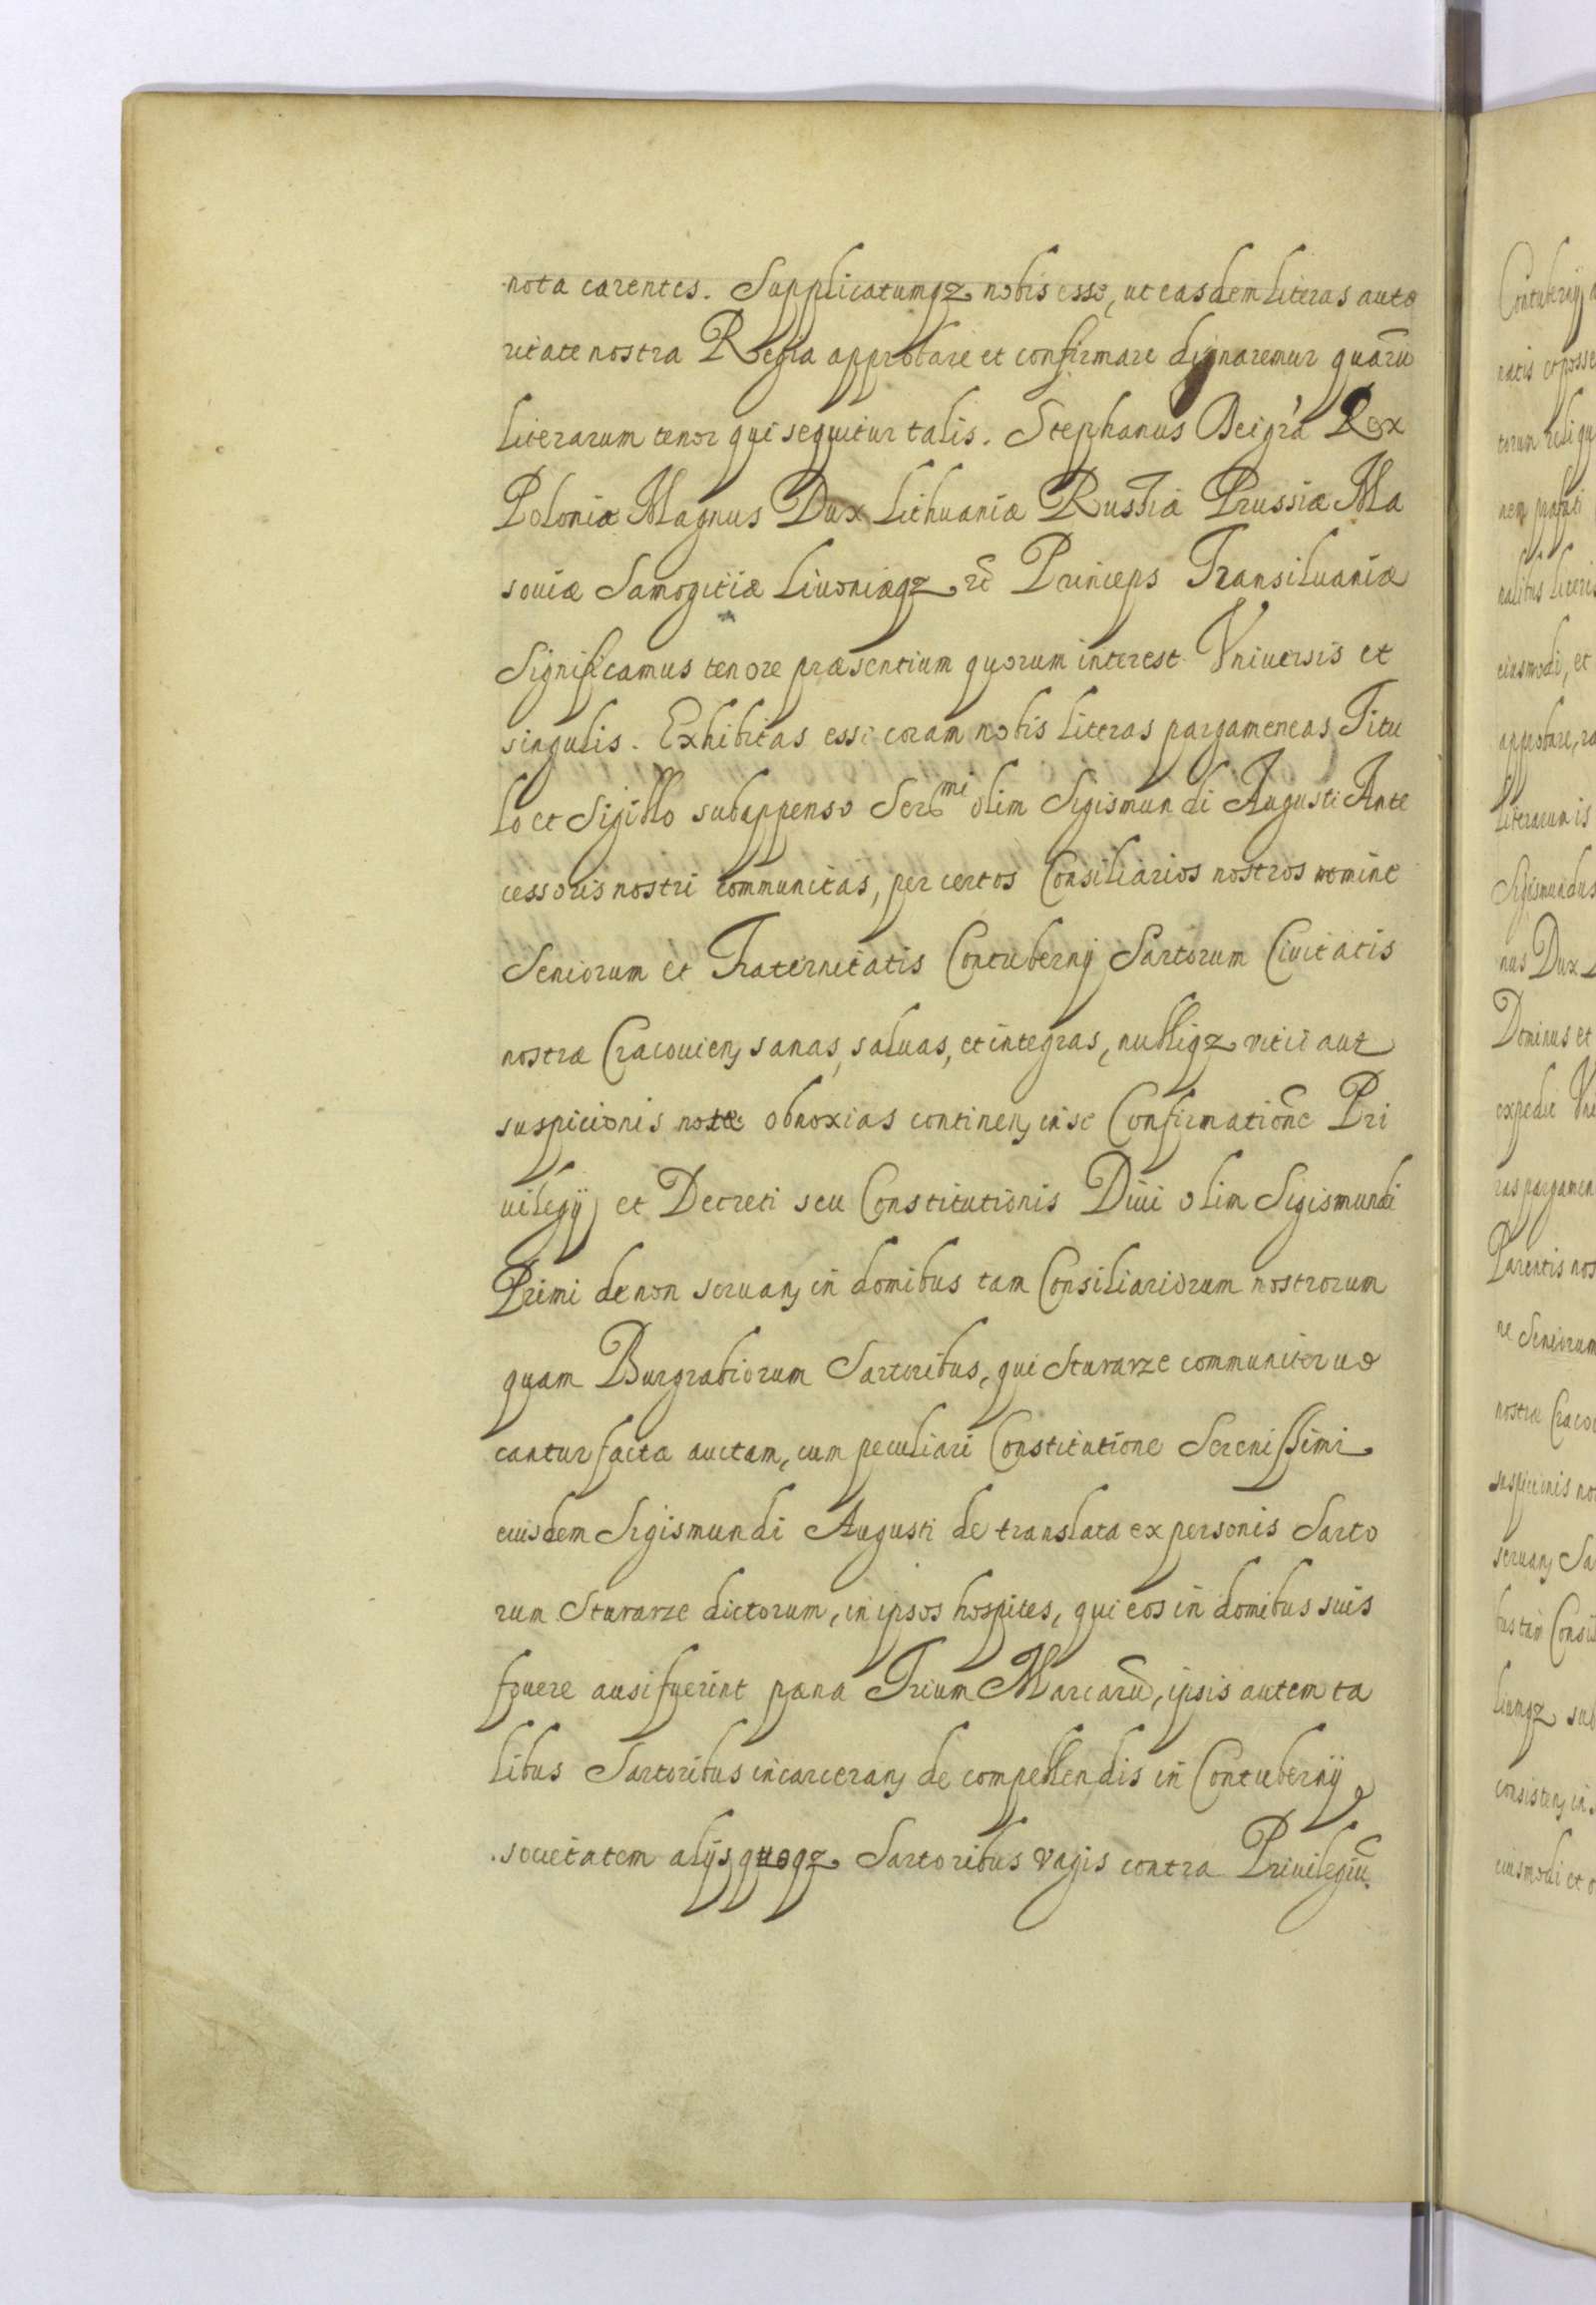 nota carentes. Supplicatumqz nobis esse, ut easdem literas auto
ritate nostra Regia approbare et confirmare dignaremur quarū
literarum tenor qui sequitur talis. Stephanus Dei gra Rex
Poloniæ Magnus Dux Lithuaniæ Russiæ Prussiæ Ma
souiæ Samogitiæ Liuoniæqz etc Princeps Transiluaniæ
Significamus tenore præsentium quorum interest Vniuersis et
singulis. Exhibitas esse coram nobis literas pargameneas Titu
lo et Sigillo subappenso Sermi olim Sigismundi Augusti Ante
cessoris nostri communitas, per certos Consiliarios nostros nomine
Seniorum et Fraternitatis Contubernij Sartorum Ciuitatis
nostræ Cracouien, sanas, saluas, et integras, nulliqz vitii aut
suspicionis notæ obnoxias continen, in se Confirmationē Pri
uilegij et Decreti seu Constitutionis Diui olim Sigismundi
Primi de non seruan, in domibus tam Consiliariorum nostrorum
quam Burgrabiorum Sartoribus, qui Sturarze communiter uo
cantur facta auctam, cum peculiari Constitutione Serenissimi
eiusdem Sigismundi Augusti de translata ex personis Sarto
rum Sturarze dictorum, in ipsos hospites, qui eos in domibus suis
fouere ausi fuerint pæna Trium Marcarū, ipsis autem ta
libus Sartoribus incarceran, de compellendis in Contubernij
societatem alijs quoqz Sartoribus vagis contra Priuilegiū
Contubernij
natis et posse
torum reliqu
nem præfati
nalibus literis
eiusmodi, et
approbare, ra
Literarum is
Sigismundus
nus Dux L
Dominus et
expedit Vni
ras pargamen
Parentis nos
ne Seniorum
nostræ Cracou
suspicionis no
seruan, Sa
bus tam Consi
liumqz sub
consisten, in
eiusmodi et o